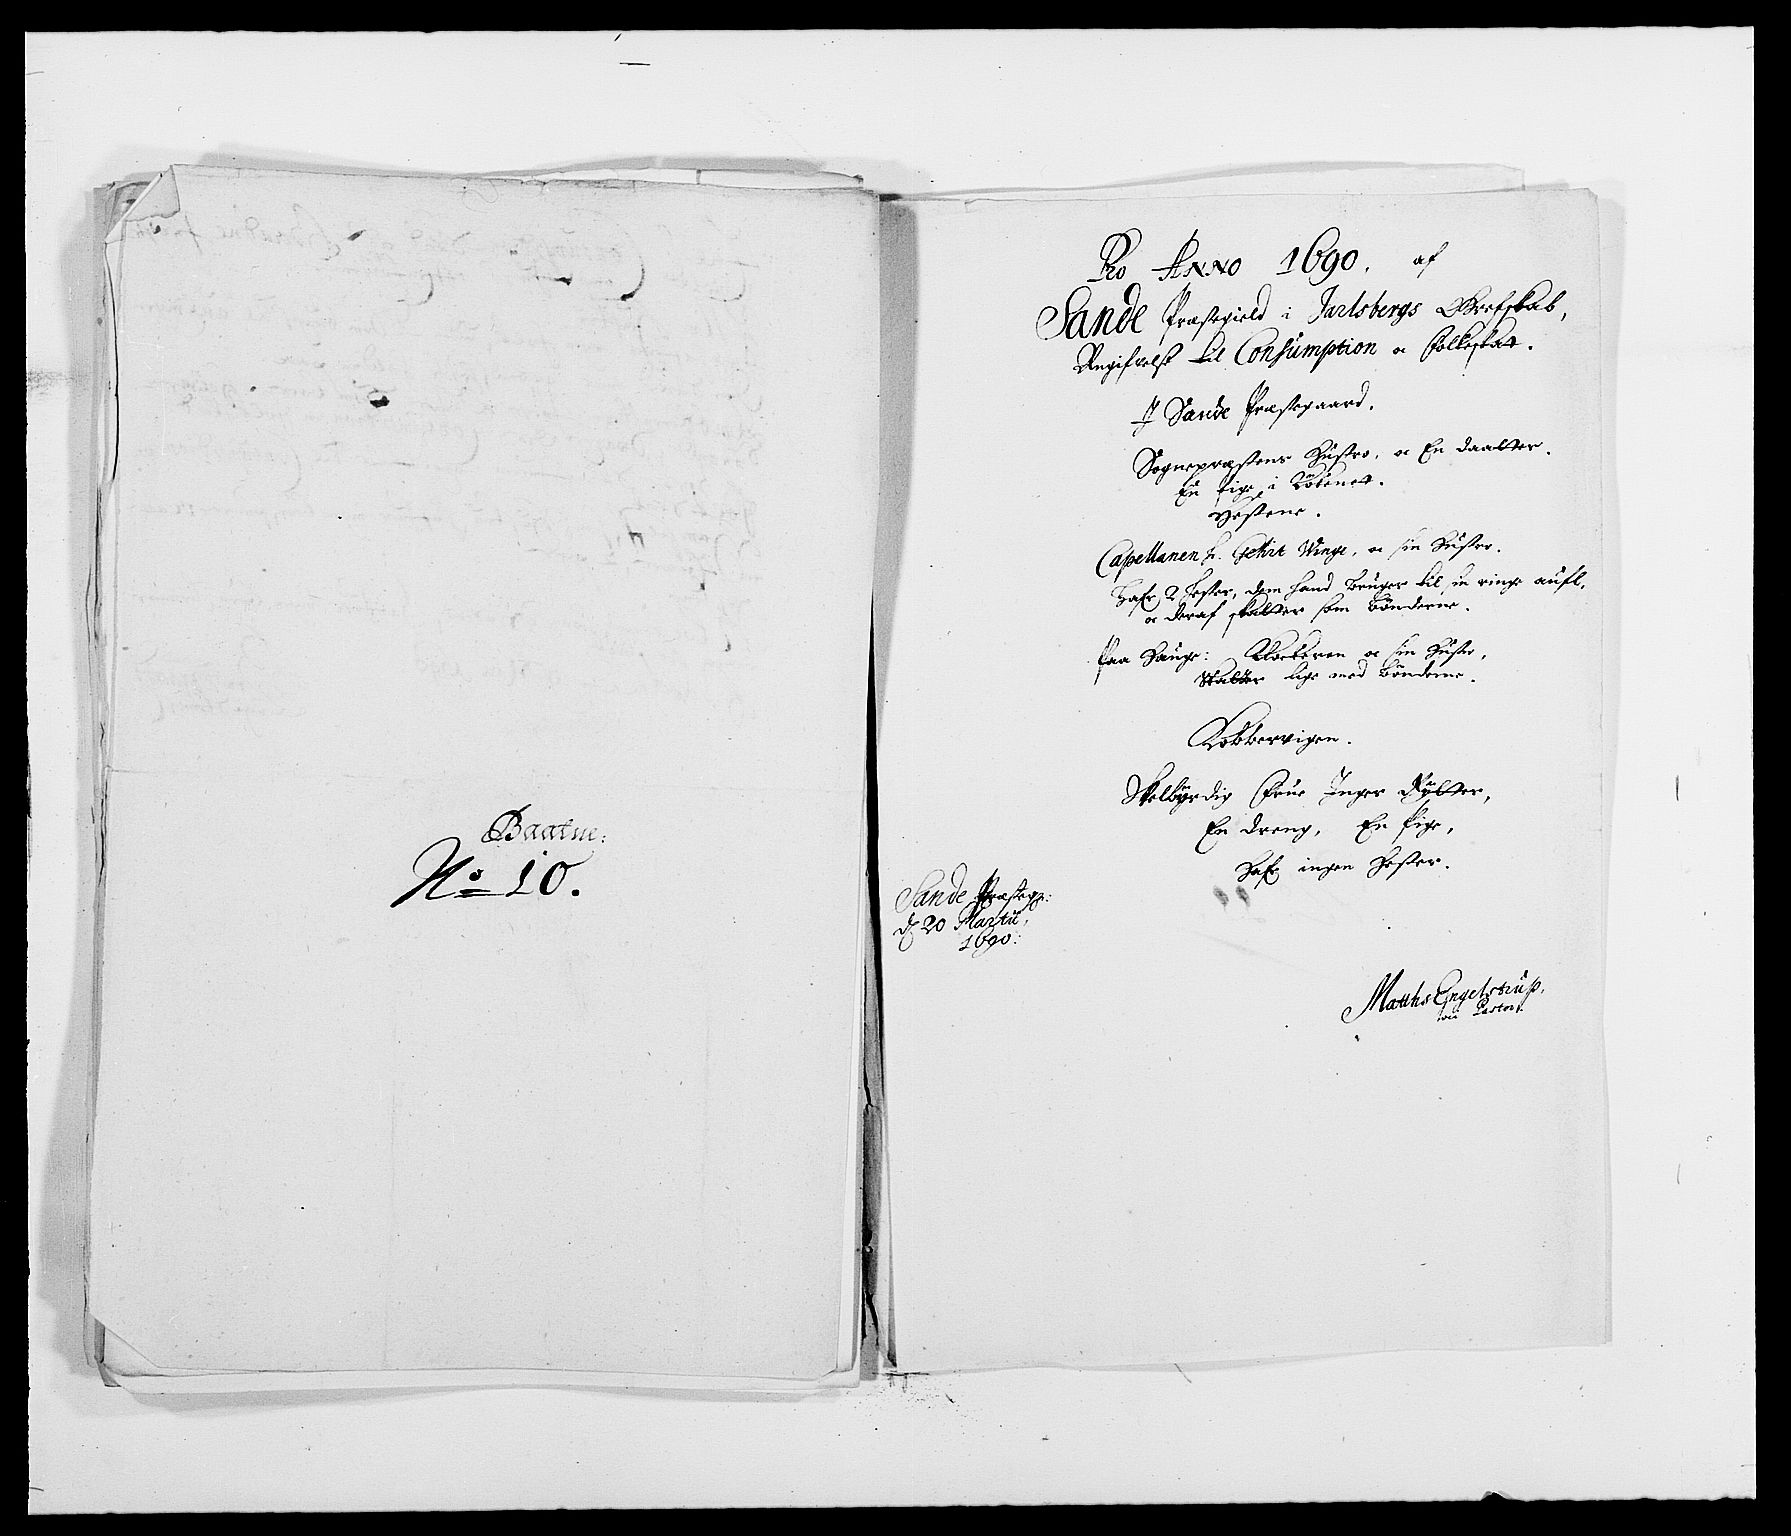 Baatne:
No 10.
Pro Anno 1690. af
Sande Præstegield i Jarlsbergs Grefskab,
Angifvelse til Consumption oc Folkeskat.
J Sande Præstegaard.
Sognepræstens Hustro, oc En daatter.
En pige i Kökenet.
Hestene.
Capellanen h. Gethrt Winge, oc sin Hustro.
Hafr 2 Hester, dem hand bruger til sin ringe aufl,
oc deraf skatter som bönderne.
Paa Hauge: Klockeren oc sin Hustro,
skatter lige med bönderne.
Kobbervigen.
Velbyrdig Frue Inger Rytter,
En dreng, En pige,
Hafr ingen Hester.
Sande Præsteg:
d. 20 Martii,
1690:
Matths Engelstrup,
Pastor.